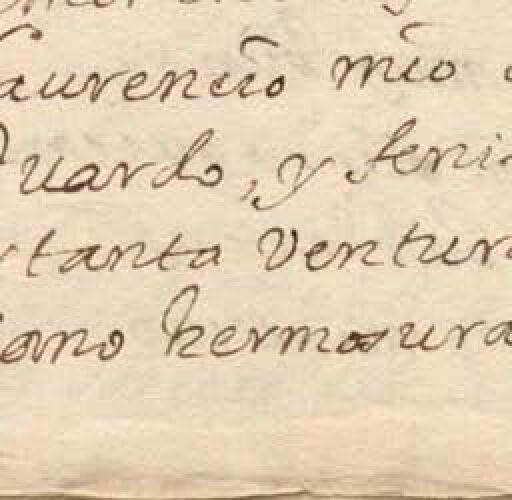 Laurencio mio
uardo, y feni
tanta ventur
ano hermosura